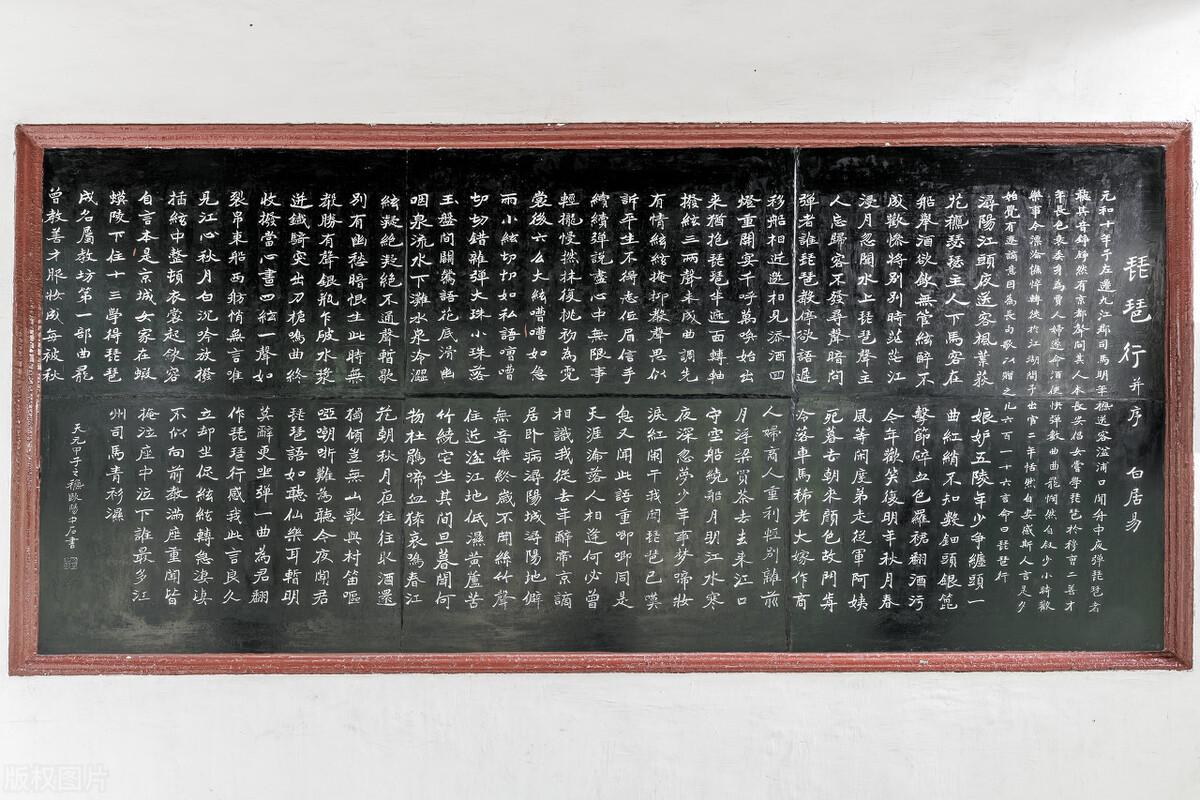 琵琶行并序 白居易
元和十年予左遷九江郡司馬明年穐送客湓浦口聞舟中夜彈琵琶者
聽其音錚錚然有京都聲問其人本長安倡女嘗學琵琶於穆曹二善才
年長色衰委身為賈人婦遂命酒使快彈數曲曲罷憫然自叙少小時歡
樂事今漂淪憔悴轉徙於江湖間予出官二年恬然自安感斯人言是夕
始覺有遷謫意因為長句歌以贈之凡六百一十六言命曰琵琶行
潯陽江頭夜送客楓葉荻
花穐瑟瑟主人下馬客在
船舉酒欲飲無管絃醉不
成歡慘將別別時茫茫江
浸月忽聞水上琵琶聲主
人忘歸客不發尋聲暗問
彈者誰琵琶聲停欲語遲
移船相近邀相見添酒四
燈重開宴千呼萬喚始出
來猶抱琵琶半遮面轉軸
撥絃三兩聲未成曲調先
有情絃絃掩抑聲聲思似
訴平生不得志低眉信手
續續彈說盡心中無限事
輕攏慢撚抹復挑初為霓
裳後六么大絃嘈嘈如急
雨小絃切切如私語嘈嘈
切切錯雜彈大珠小珠落
玉盤間關鶯語花底滑幽
咽泉流水下灘水泉冷澀
絃凝絕凝絕不通聲暫歇
別有幽愁暗恨生此時無
聲勝有聲銀瓶乍破水漿
迸鐵騎突出刀槍鳴曲終
收撥當心畫四絃一聲如
裂帛東船西舫悄無言唯
見江心秋月白沉吟放撥
插絃中整頓衣裳起斂容
自言本是京城女家在蝦
蟆陵下住十三學得琵琶
成名屬教坊第一部曲罷
曾教善才服妝成每被秋
娘妒五陵年少爭纏頭一
曲紅綃不知數鈿頭銀篦
擊節碎血色羅裙翻酒污
今年歡笑復明年秋月春
風等閑度弟走從軍阿姨
死暮去朝來顏色故門前
冷落車馬稀老大嫁作商
人婦商人重利輕別離前
月浮梁買茶去去來江口
守空船繞船月明江水寒
夜深忽夢少年事夢啼妝
淚紅闌干我聞琵琶已嘆
息又聞此語重唧唧同是
天涯淪落人相逢何必曾
相識我從去年辭帝京謫
居臥病潯陽城潯陽地僻
無音樂終歲不聞絲竹聲
住近湓江地低濕黃蘆苦
竹繞宅生其間旦暮聞何
物杜鵑啼血猿哀鳴春江
花朝秋月夜往往取酒還
獨傾豈無山歌與村笛嘔
啞嘲哳難為聽今夜聞君
琵琶語如聽仙樂耳暫明
莫辭更坐彈一曲為君翻
作琵琶行感我此言良久
立却坐促絃絃轉急淒淒
不似向前聲滿座重聞皆
掩泣座中泣下誰最多江
州司馬青衫濕
天元甲子之穐歐陽中石書
版权图片